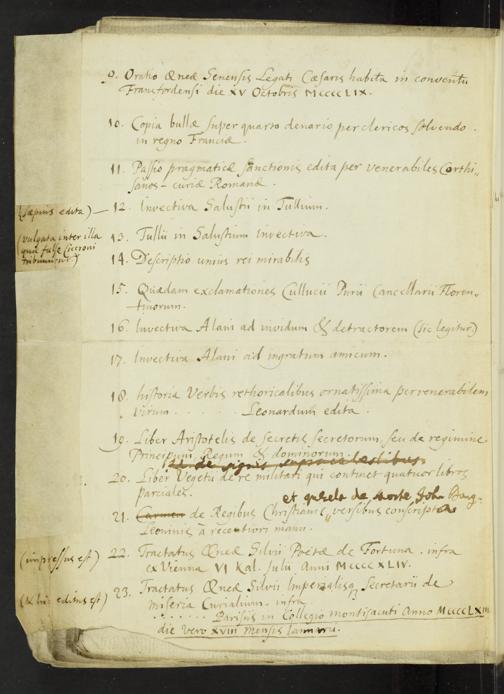 9. Oratio Æneæ Senensis Legati Cæsaris habita in conventu
Francfordensi die XV Octobris MCCCCLIX.
10. Copia bullæ super quarto denario per clericos solvendo
in regno Franciæ.
11. Passio pragmaticæ sanctionis edita per venerabiles Corthi-
sanos curiæ Romanæ.
(sæpius edita) — 12. Invectiva Salustii in Tullium.
(vulgata inter illa
quæ falso Ciceroni
tribuuntur)
13. Tullii in Salustium invectiva.
14. Descriptio unius rei mirabilis
15. Quædam exclamationes Cullucii Pierii Cancellarii Floren-
tinorum.
16. Invectiva Alani ad invidum & detractorem (sic legitur)
17. Invectiva Alani ad ingratum amicum.
18. historia verbis rethoricalibus ornatissima per venerabilem
virum . . . . . . Leonardum edita.
19. Liber Aristotelis de secretis secretorum, seu de regimine
Principum Regum & dominorum.
20. Liber Vegetii de re militari qui continet quatuor libros
parciales.
et querela de morte Joh. Burg.
21. Carmen de Regibus Christianis, versibus conscripta
Leoninis à recentiori manu.
(impressus est) 22. Tractatus Æneæ Silvii Poëtæ de Fortuna. infra
ex Vienna VI Kal. Julii Anni MCCCCXLIV.
(& hic editus est) 23. Tractatus Æneæ Silvii Imperialisq; Secretarii de
miseria Curialium. infra
. . . . . . Parisiis in Collegio montisacuti Anno MCCCCLXIII
die vero XVIII mensis Januarii.